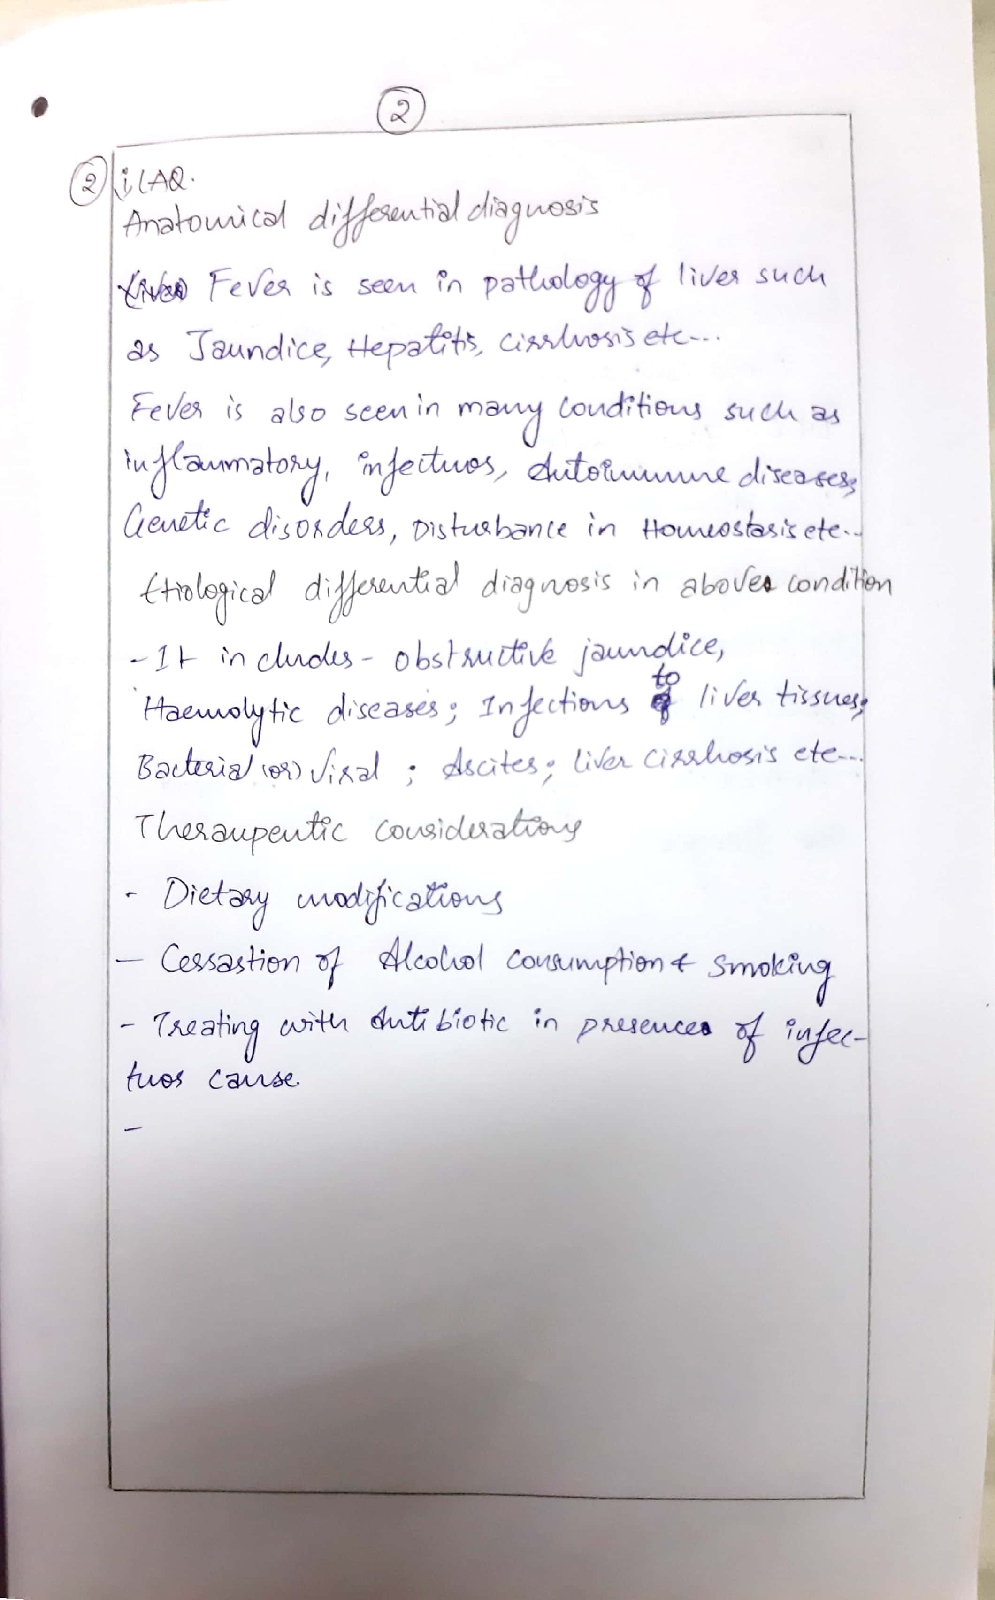 2
2 i LAQ.
Anatomical differential diagnosis
Fever is seen in pathology of liver such
as Jaundice, Hepatitis, cirrhosis etc...
Fever is also seen in many conditions such as
inflammatory, infectuos, Autoimmune diseases,
Genetic disorders, Disturbance in Homeostasis etc...
Etiological differential diagnosis in above condition
- It includes - obstructive jaundice,
Haemolytic diseases; Infections to liver tissues;
Bacterial (or) viral ; Ascites; liver cirrhosis etc...
Theraupeutic considerations
- Dietary modifications
- Cessastion of Alcohol consumption & smoking
- Treating with Antibiotic in presence of infec-
tuos cause.
-